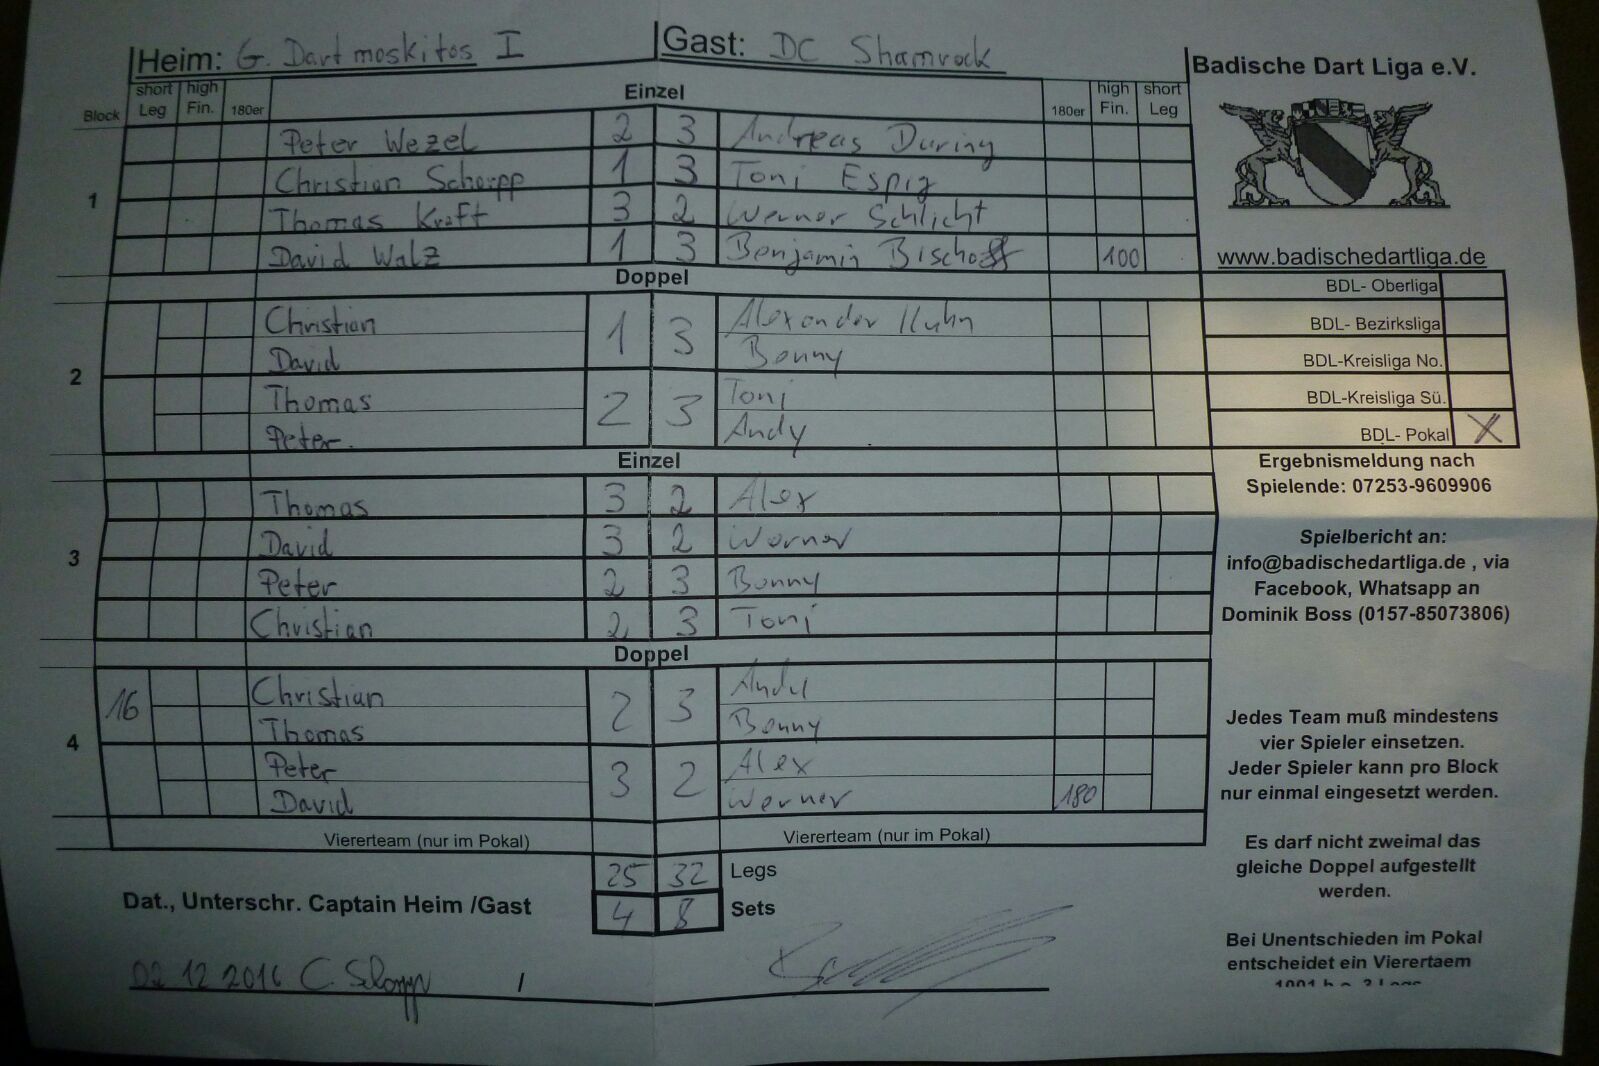 Heim: G. Dartmoskitos I Gast: DC Shamrock
Badische Dart Liga e.V.
Block short Leg high Fin. 180er Einzel 180er high Fin. short Leg
1
Peter Wezel 2 3 Andreas Düring
Christian Schorpp 1 3 Toni Espig
Thomas Kraft 3 2 Werner Schlicht
David Walz 1 3 Benjamin Bischoff 100
www.badischedartliga.de
Doppel
BDL- Oberliga
BDL- Bezirksliga
BDL-Kreisliga No.
BDL-Kreisliga Sü.
BDL- Pokal X
2
Christian 1 3 Alexander Kuhn
David Benny
Thomas 2 3 Toni
Peter Andy
Einzel
Ergebnismeldung nach
Spielende: 07253-9609906
3
Thomas 3 2 Alex
David 3 2 Werner
Peter 2 3 Benny
Christian 2 3 Toni
Spielbericht an:
info@badischedartliga.de , via
Facebook, Whatsapp an
Dominik Boss (0157-85073806)
Doppel
4
16 Christian 2 3 Andy
Thomas Benny
Peter 3 2 Alex
David Werner 180
Jedes Team muß mindestens
vier Spieler einsetzen.
Jeder Spieler kann pro Block
nur einmal eingesetzt werden.
Viererteam (nur im Pokal) Viererteam (nur im Pokal)
Es darf nicht zweimal das
gleiche Doppel aufgestellt
werden.
25 32 Legs
Dat., Unterschr. Captain Heim /Gast 4 8 Sets
Bei Unentschieden im Pokal
entscheidet ein Vierertaem
02 12 2016 C. Schorpp /